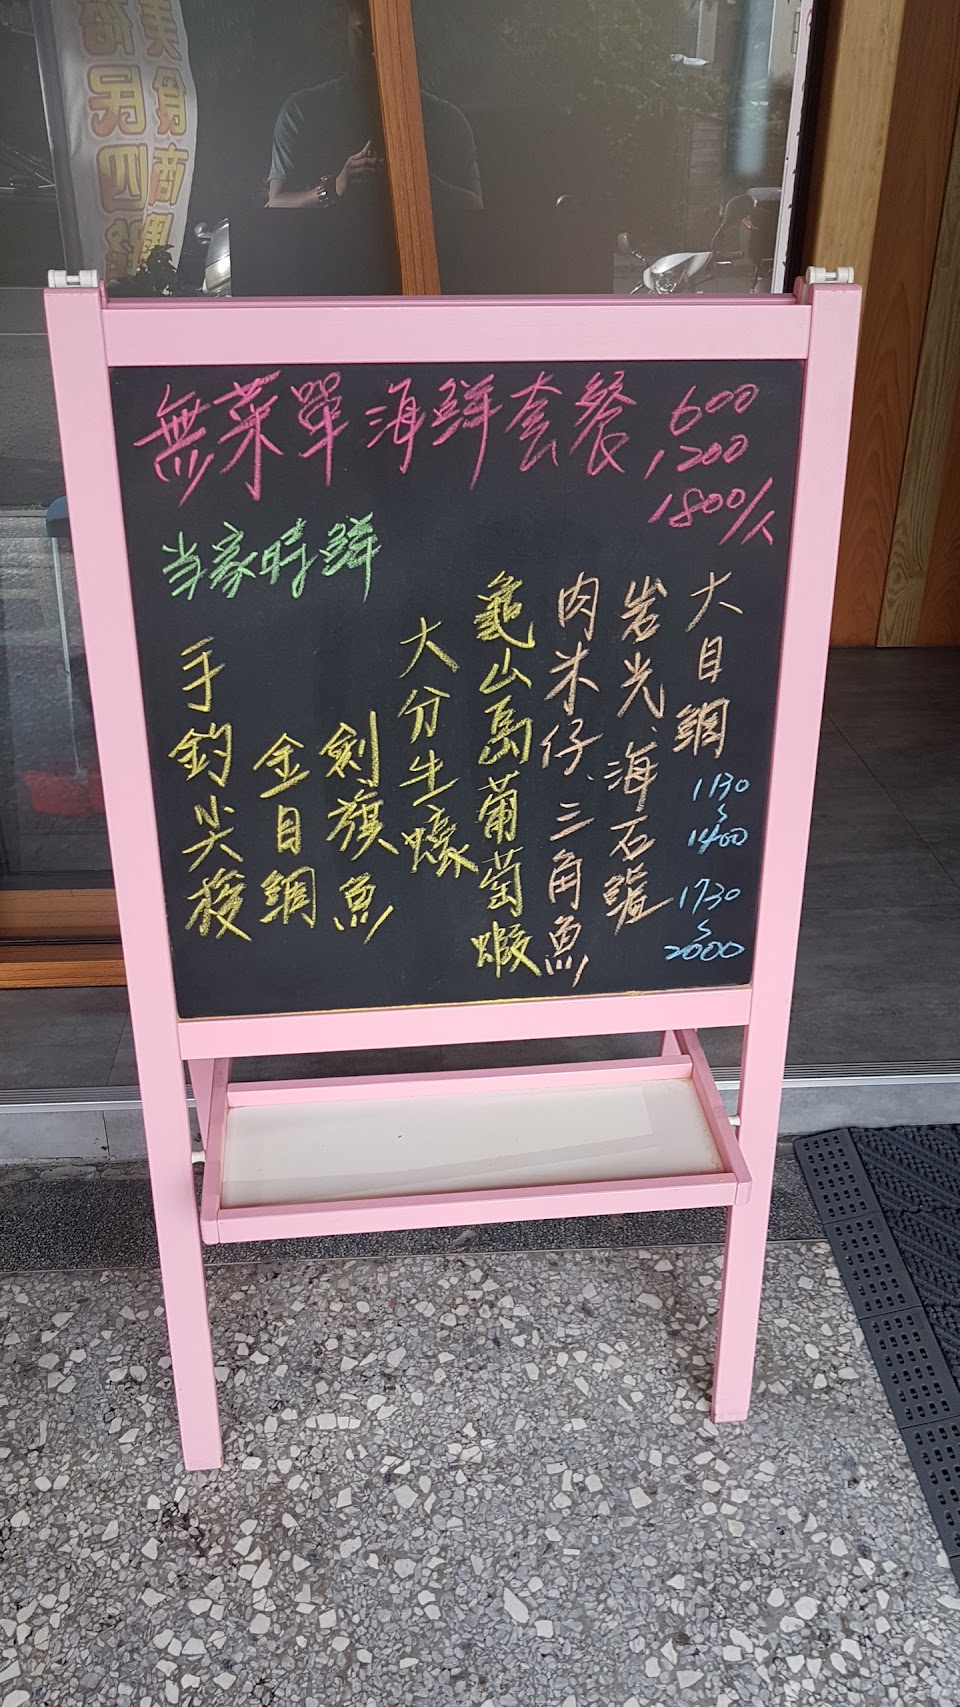 美食商圈
無菜單海鮮套餐 600
1200
1800/人
当家時鮮
大目鯛
岩光、海石
肉米仔、三角魚
龜山島葡萄蝦
大分生蠔
劍旗魚
金目鯛
手釣尖梭
1130
~
1400
1730
~
2000